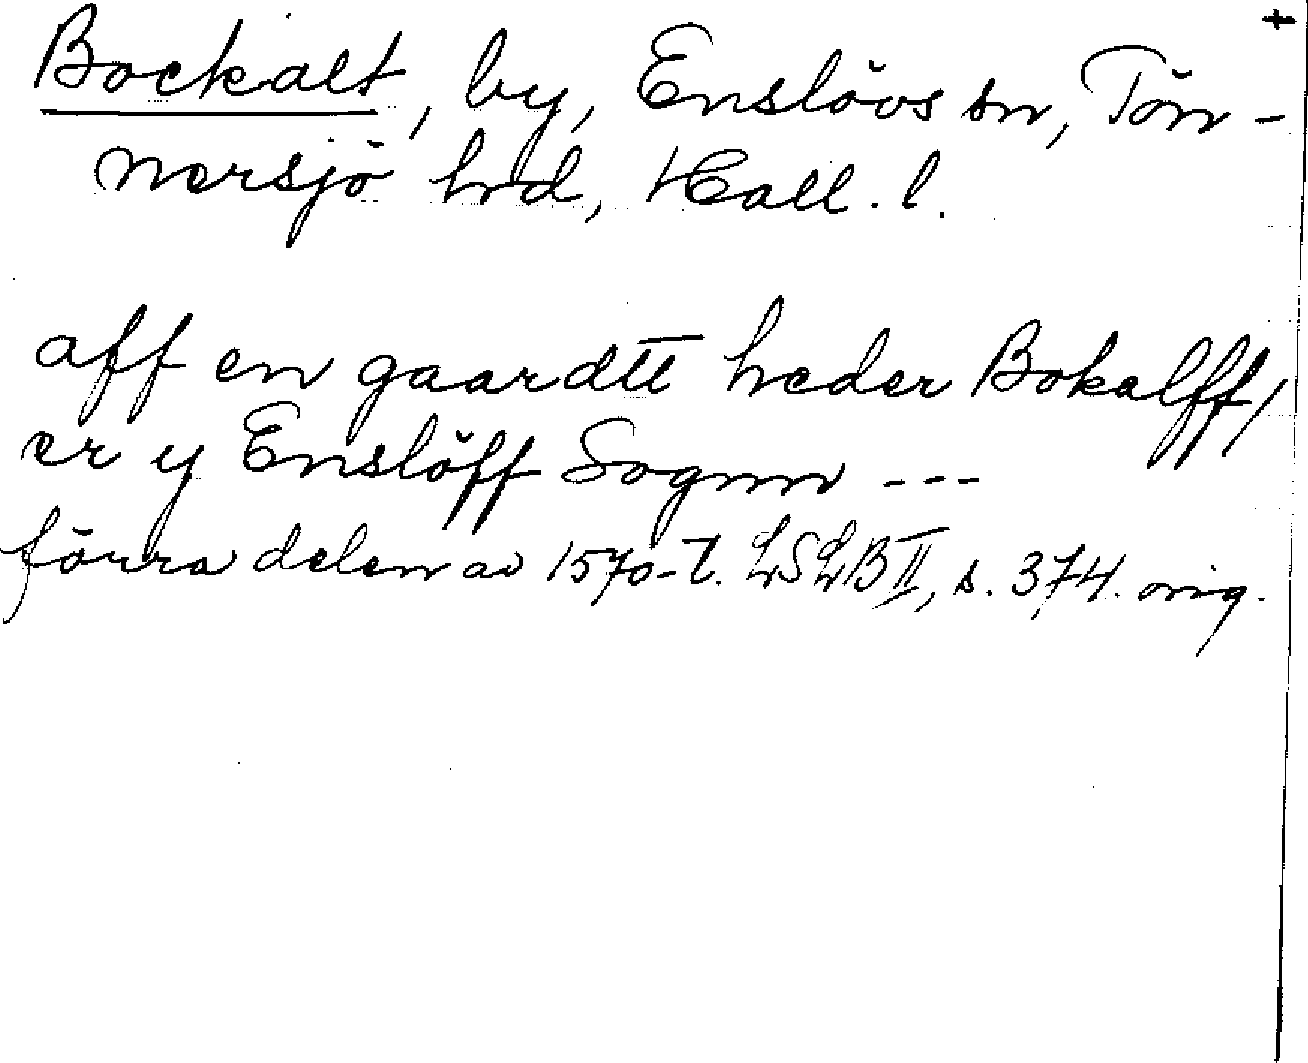 +
Bockalt, by, Enslövs sn, Tön-
nersjö hrd, Hall. l.
aff en gaardtt heder Bokalff,
er y Enslöff Sognn ---
förra delen av 1570-t. LSLB II, s. 374. orig.